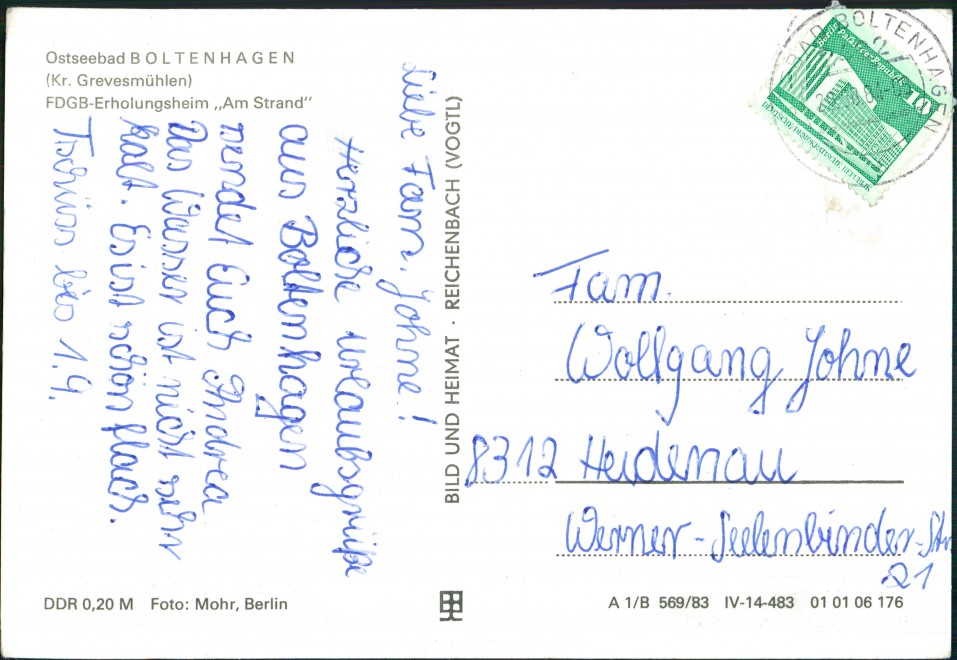 Ostseebad BOLTENHAGEN
(Kr. Grevesmühlen)
FDGB-Erholungsheim „Am Strand”
Liebe Fam. Johne!
Herzliche Urlaubsgrüße
aus Boltenhagen
sendet Euch Andrea
Das Wasser ist nicht sehr
kalt. Es ist schön flach.
Tschüss bis 1.9.
BILD UND HEIMAT · REICHENBACH (VOGTL)
BAD BOLTENHAGEN
Berlin
Palast der Republik
10
DEUTSCHE DEMOKRATISCHE REPUBLIK
Fam.
Wolfgang Johne
8312 Heidenau
Werner-Seelenbinder-Str
21
DDR 0,20 M Foto: Mohr, Berlin
A 1/B 569/83 IV-14-483 01 01 06 176